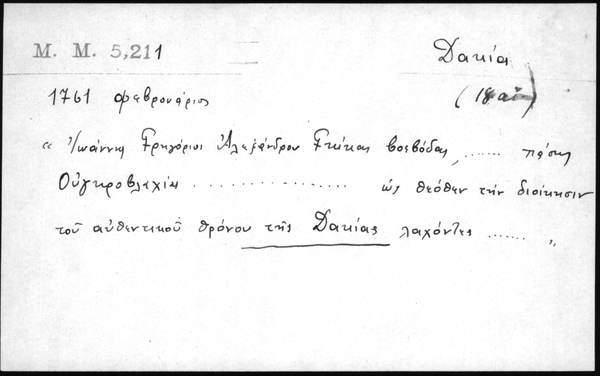 M. M. 5,211
Δακία
1761 φεβρουάριος
(18 αἰ)
" Ἰωάννης Γρηγόριος Ἀλεξάνδρου Γκίκας βοεβόδας, ....... πάσης
Οὐγκροβλαχίας .................... ὡς θεόθεν τὴν διοίκησιν
τοῦ αὐθεντικοῦ θρόνου τῆς Δακίας λαχόντες ....... "